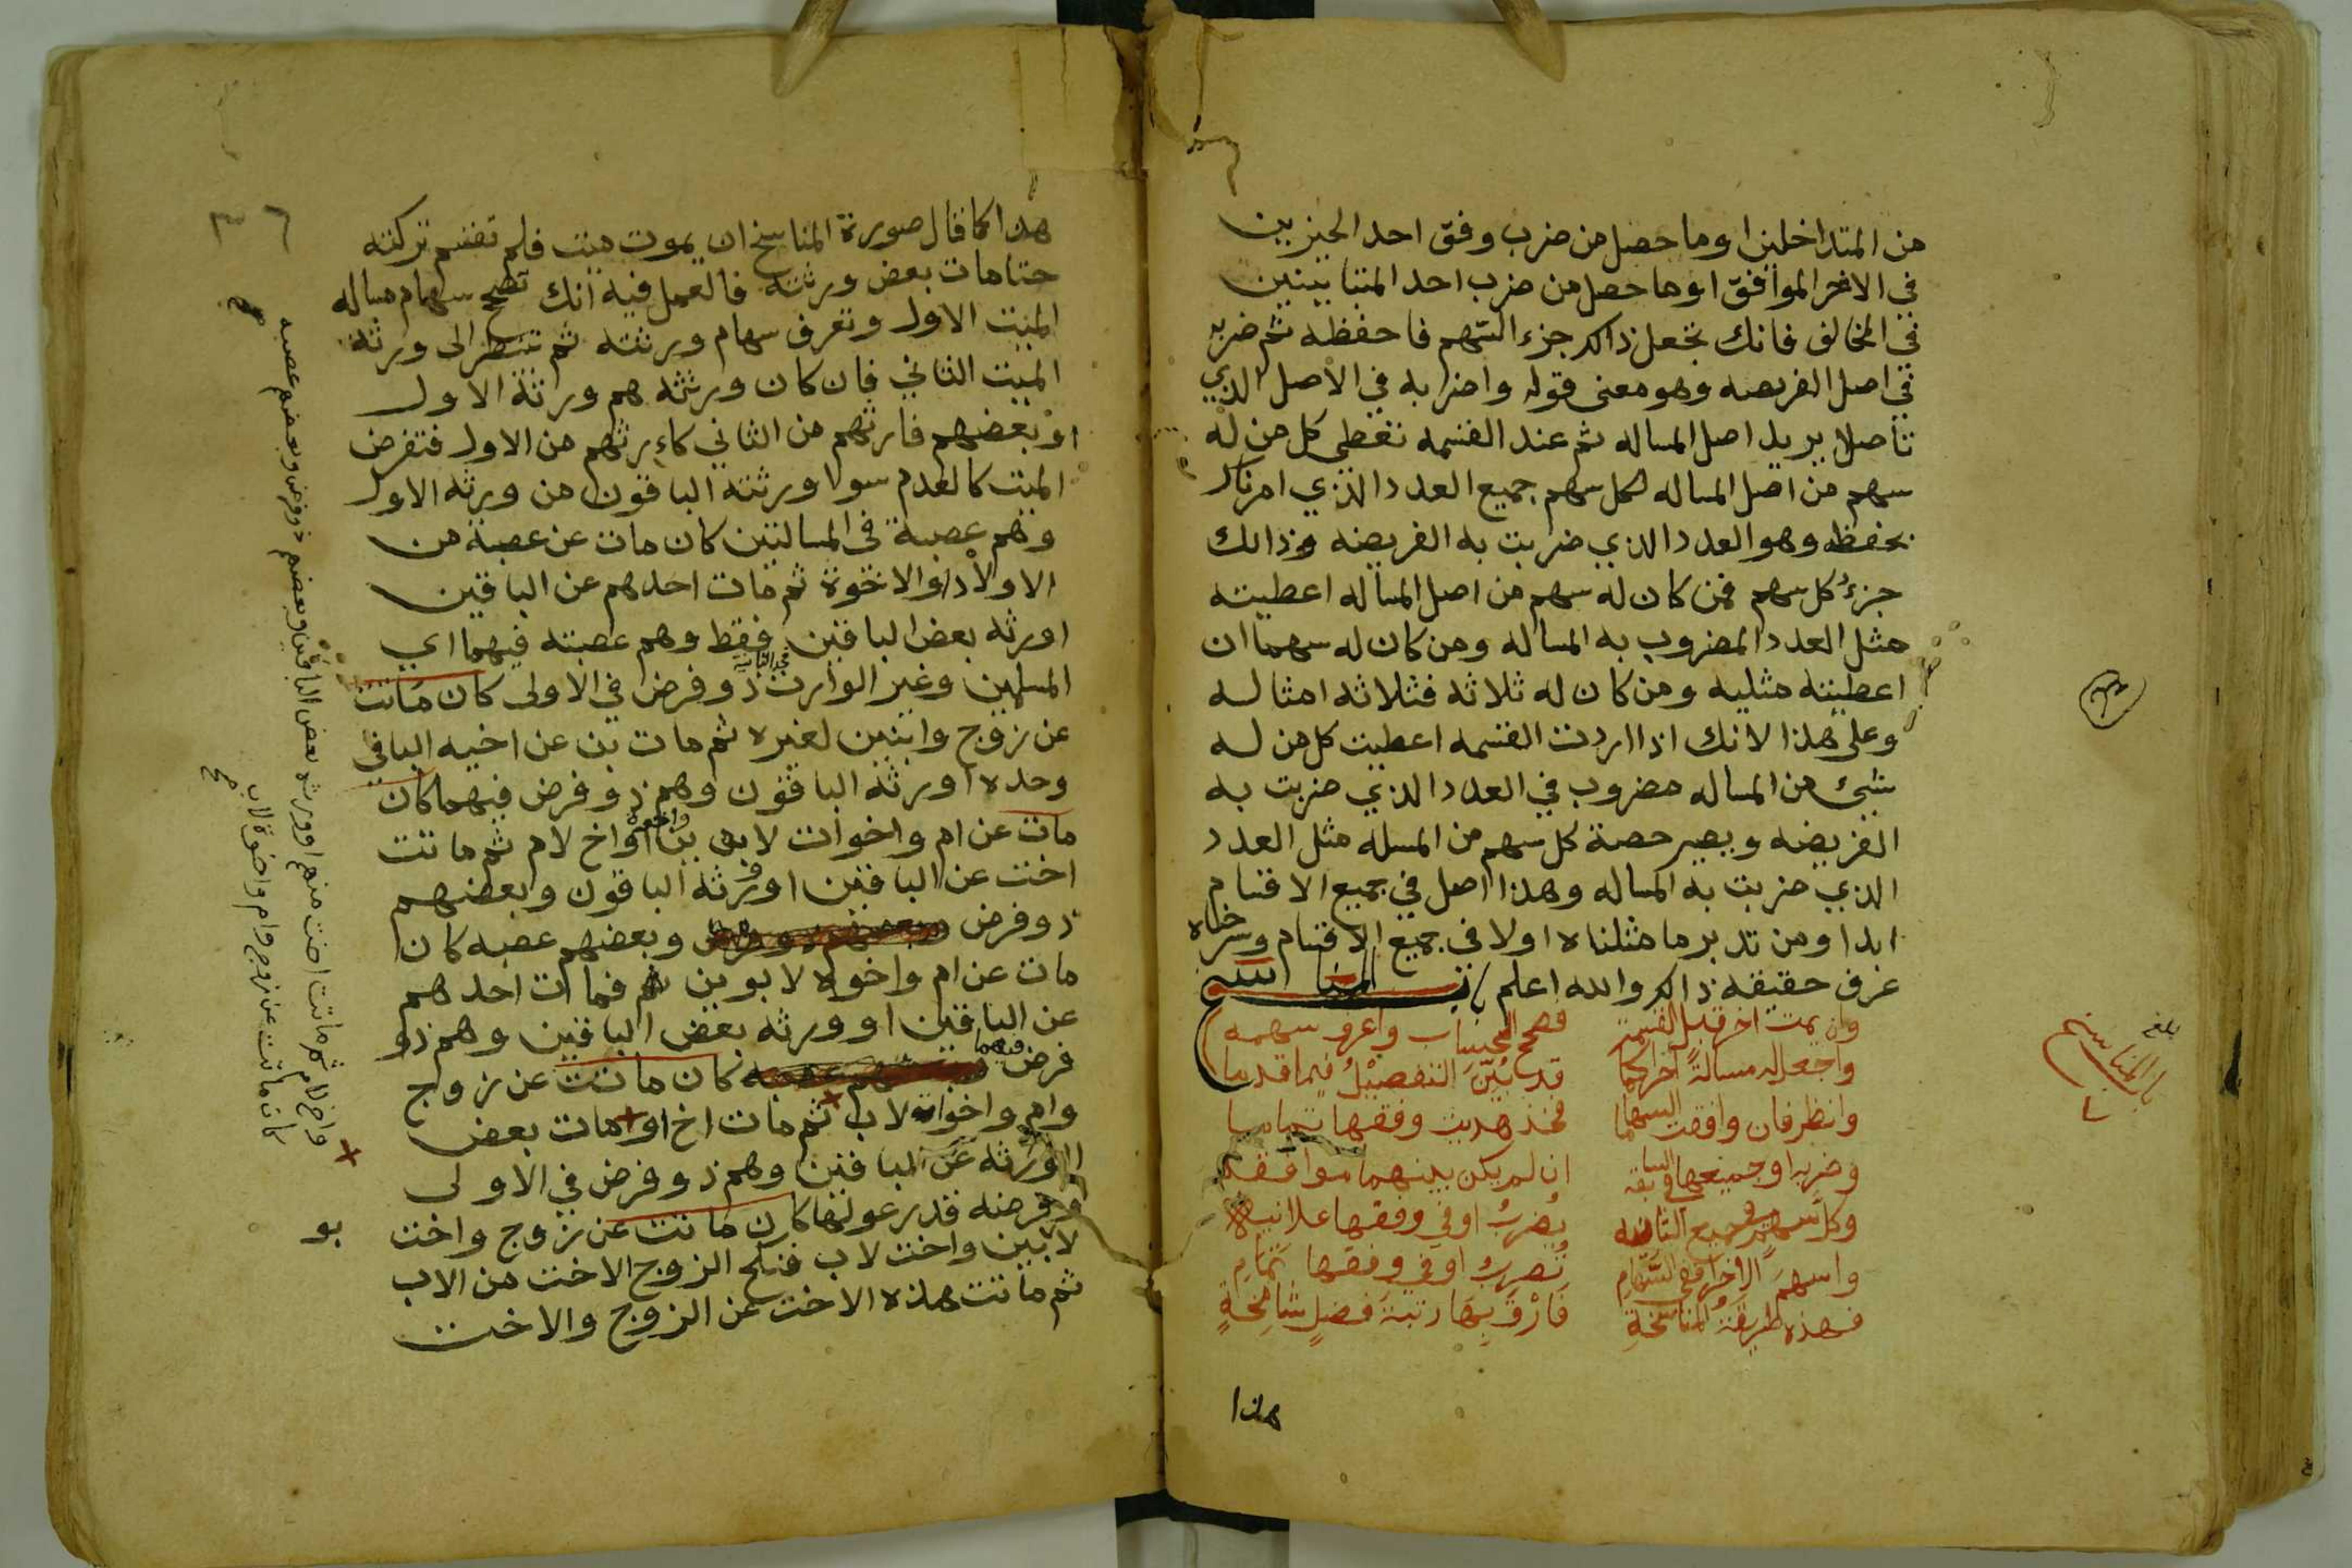 من المتداخلين او ما حصل من ضرب وفق احد الحيزين
في الاخر الموافق او ما حصل من ضرب احد المتباينين
في المخالف فانك تجعل ذالك جزء السهم فاحفظه ثم ضربه
في اصل الفريضه وهو معنى قوله واضرابه في الاصل الذي
تأصلا يريد اصل المساله ثم عند القسمه تعطي كل من له
سهم من اصل المساله لكل سهم جميع العدد الذي امرناك
بحفظه وهو العدد الذي ضربت به الفريضه وذالك
جزء كل سهم فمن كان له سهم من اصل المساله اعطيته
مثل العدد المضروب به المساله ومن كان له سهمان
اعطيته مثليه ومن كان له ثلاثه فثلاثه امثاله
وعلى هذا لانك اذا اردت القسمه اعطيت كل من له
شيئ من المساله مضروب في العدد الذي ضربت به
الفريضه ويصير حصة كل سهم من المسله مثل العدد
الذي ضربت به المساله وهذا اصل في جميع الاقسام
ابدا ومن تدبر ما مثلناه اولا في جميع الاقسام وشرحناه
عرف حقيقه ذالك والله اعلم باب المناسخ
وان يمت اخر قبل القسمه فصحح الحساب واعرف سهمه
واجعل له مسالة اخرى كما قد بين التفصيل فيما قدما
وانظر فان وافقت السهاما فخذ هديت وفقها تماما
وضربه او جميعها في السابقه ان لم يكن بينهما موافقه
وكل سهم في جميع الثانيه يضرب او في وفقها علانيه
واسهم الاخرى ففي السهام تضرب او في وفقها تمام
فهذه طريقة المناسخة فارق بها رتبة فضل شامخة
هذا
بلغ
باب المناسخ
هذا كما قال صورة المناسخ ان يموت ميت فلم تقسم تركته
حتا مات بعض ورثته فالعمل فيه انك تصحح سهام مساله
الميت الاول وتعرف سهام ورثته ثم تنظر الى ورثة
الميت الثاني فان كان ورثته هم ورثة الاول
او بعضهم فارثهم من الثاني كاءرثهم من الاول فتفرض
الميت كالعدم سوا ورثته الباقون من ورثه الاول
وهم عصبة في المسالتين كان مات عن عصبة من
الاولاد او الاخوة ثم مات احدهم عن الباقين
او رثه بعض الباقين فقط وهم عصبته فيهما اي
المسلتين وغير الوارث في الثانية ذو فرض في الاولى كان ماتت
عن زوج وابنين لغيره ثم مات بن عن اخيه الباقي
وحده او رثه الباقون وهم ذو فرض فيهما كان
مات عن ام واخوات لابوين واخوة او اخ لام ثم ماتت
اخت عن الباقين او ورثه الباقون وبعضهم
ذو فرض وبعضهم عصبه كان
مات عن ام واخوه لابوين فمات احدهم
عن الباقين او ورثه بعض الباقين وهم ذو
فرض فيهما كان ماتت عن زوج
وام واخوات لاب ثم مات اخ او مات بعض
الورثه عن الباقين وهم ذو فرض في الاولى
وفرضه قدر عولها كان ماتت عن زوج واخت
لابين واخت لاب فنكح الزوج الاخت من الاب
ثم ماتت هذه الاخت عن الزوج والاخت
ذو فرض وبعضهم عصبه
واخ لام ثم ماتت اخت منهم او ورثه بعض الباقين وبعضهم
كان ماتت عن زوج وام واخوة لاب